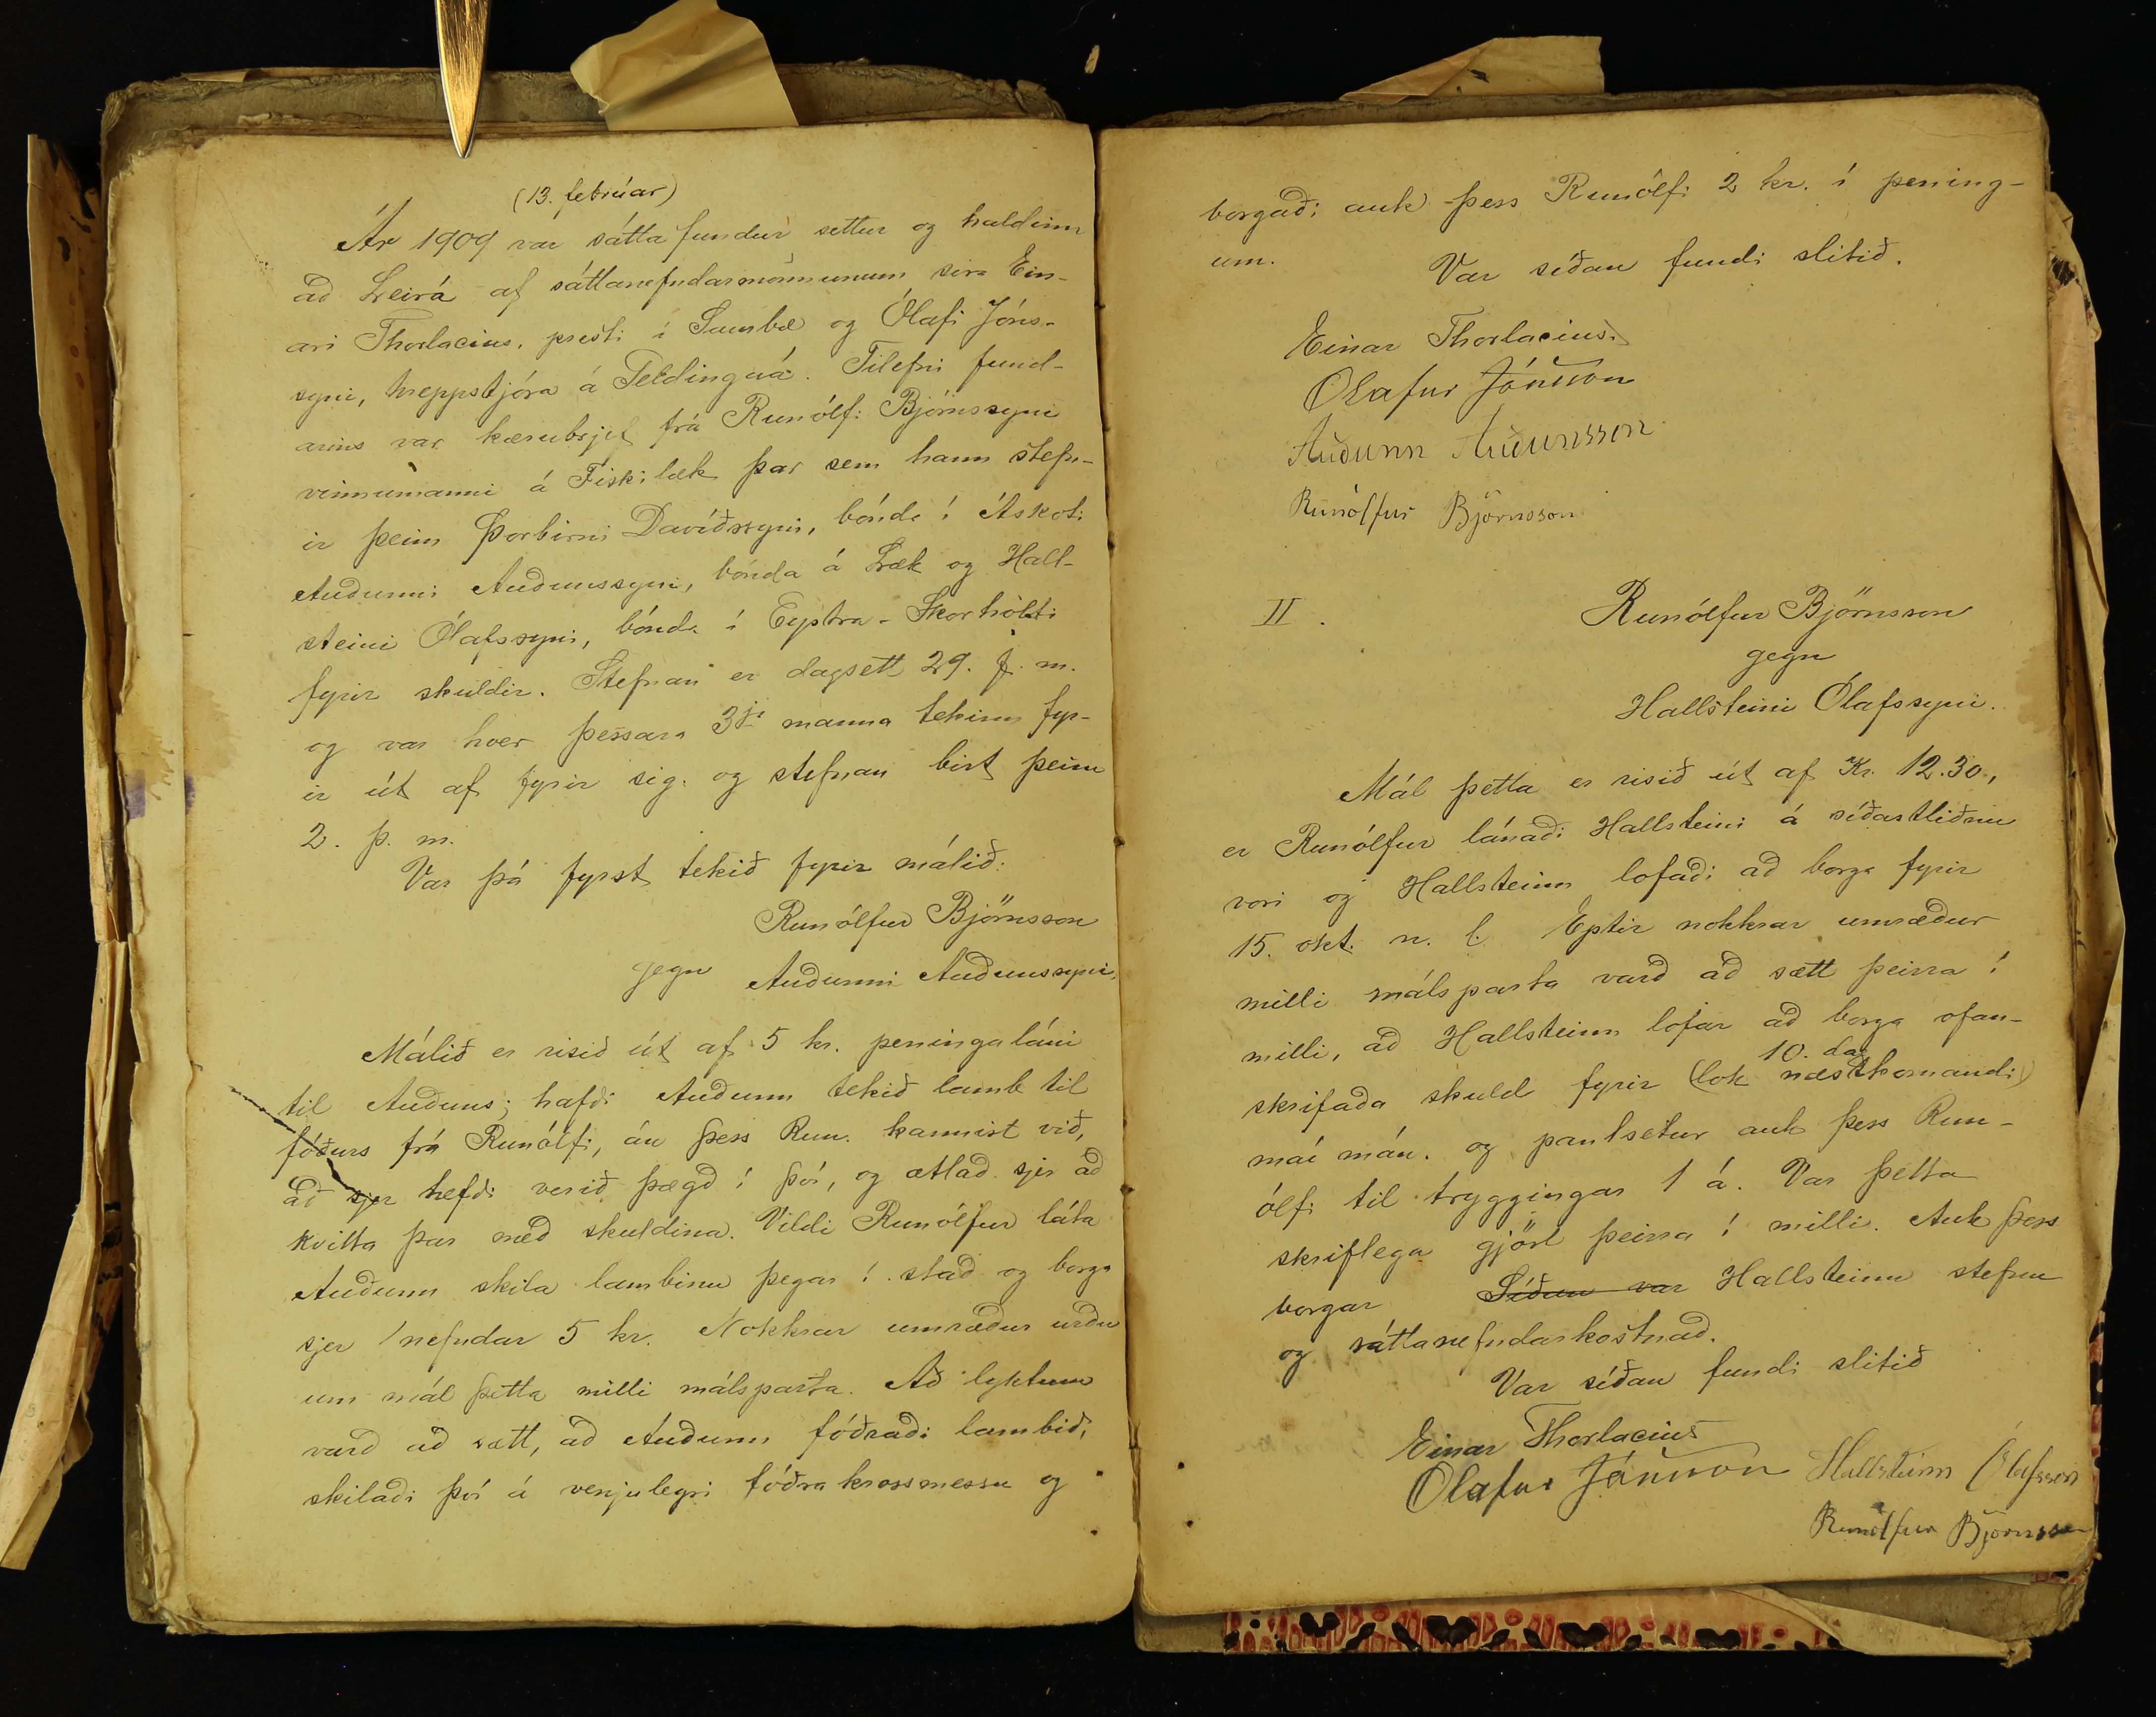 (13. febrúar)
Ár 1909 var sáttafundur settur og haldinn
að Leirá af sáttanefndarmönnunum síra Ein-
ari Thorlacius, presti í Saurbæ og Ólafi Jóns-
syni, hreppstjóra á Geldingaá. Tilefni fund-
arins var kærubrjef frá Runólfi Björnssyni
vinnumanni á Fiskilæk þar sem hann stefn-
ir þeim Þorbirni Davíðssyni, bónda í Áskoti
Auðunni Auðunssyni, bónda á Læk og Hall-
steini Ólafssyni, bónda í Eystra-Skorholti
fyrir skuldir. Stefnan er dagsett 29. f. m.
og var hver þessara 3ja manna tekinn fyr-
ir út af fyrir sig og stefnan birt þeim
2. þ. m.
Var þá fyrst tekið fyrir málið:
Runólfur Björnsson
gegn Auðunni Auðunssyni.
Málið er risið út af 5 kr. peningaláni
til Auðuns; hafði Auðunn tekið lamb til
fóðurs frá Runólfi, án þess Run. kannist við,
að sjer hefði verið þægð í því, og ætlað sjer að
kvitta þar með skuldina. Vildi Runólfur láta
Auðunn skila lambinu þegar í stað og borga
sjer /nefndar 5 kr. Nokkrar umræður urðu
um mál þetta milli málsparta. Að lyktum
varð að sætt, að Auðunn fóðraði lambið,
skilaði því á venjulegri fóðra krossmessu og
borgaði auk þess Runólfi 2 kr. í pening-
um.
Var síðan fundi slitið.
Einar Thorlacius.
Olafur Jónsson
Auðunn Auðunsson
Runólfur Björnsson
II.
Runólfur Björnsson
gegn
Hallsteini Ólafssyni.
Mál þetta er risið út af Kr. 12.30,
er Runólfur lánaði Hallsteini á síðastliðnu
vori og Hallsteinn lofaði að borga fyrir
15. okt. n. l. Eptir nokkrar umræður
milli málsparta varð að sætt þeirra í
milli, að Hallsteinn lofar að borga ofan-
10. dag
skrifaða skuld fyrir (lok næstkomandi)
maí mán. og pantsetur auk þess Run-
ólfi til tryggingar 1 á. Var þetta
skriflega gjört þeirra í milli. Auk þess
borgar Síðan var Hallsteinn stefnu
og sáttanefndarkostnað.
Var síðan fundi slitið
Einar Thorlacius
Olafur Jónsson Hallsteinn Ólafsson
Runólfur Björnsson